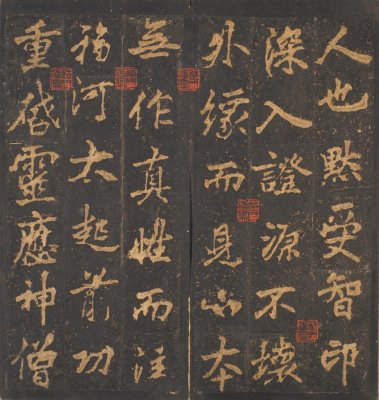 人也默受智印
深入證源不壞
外緣而見心本
無作真性而注
福河大起前功
重啓靈應神僧